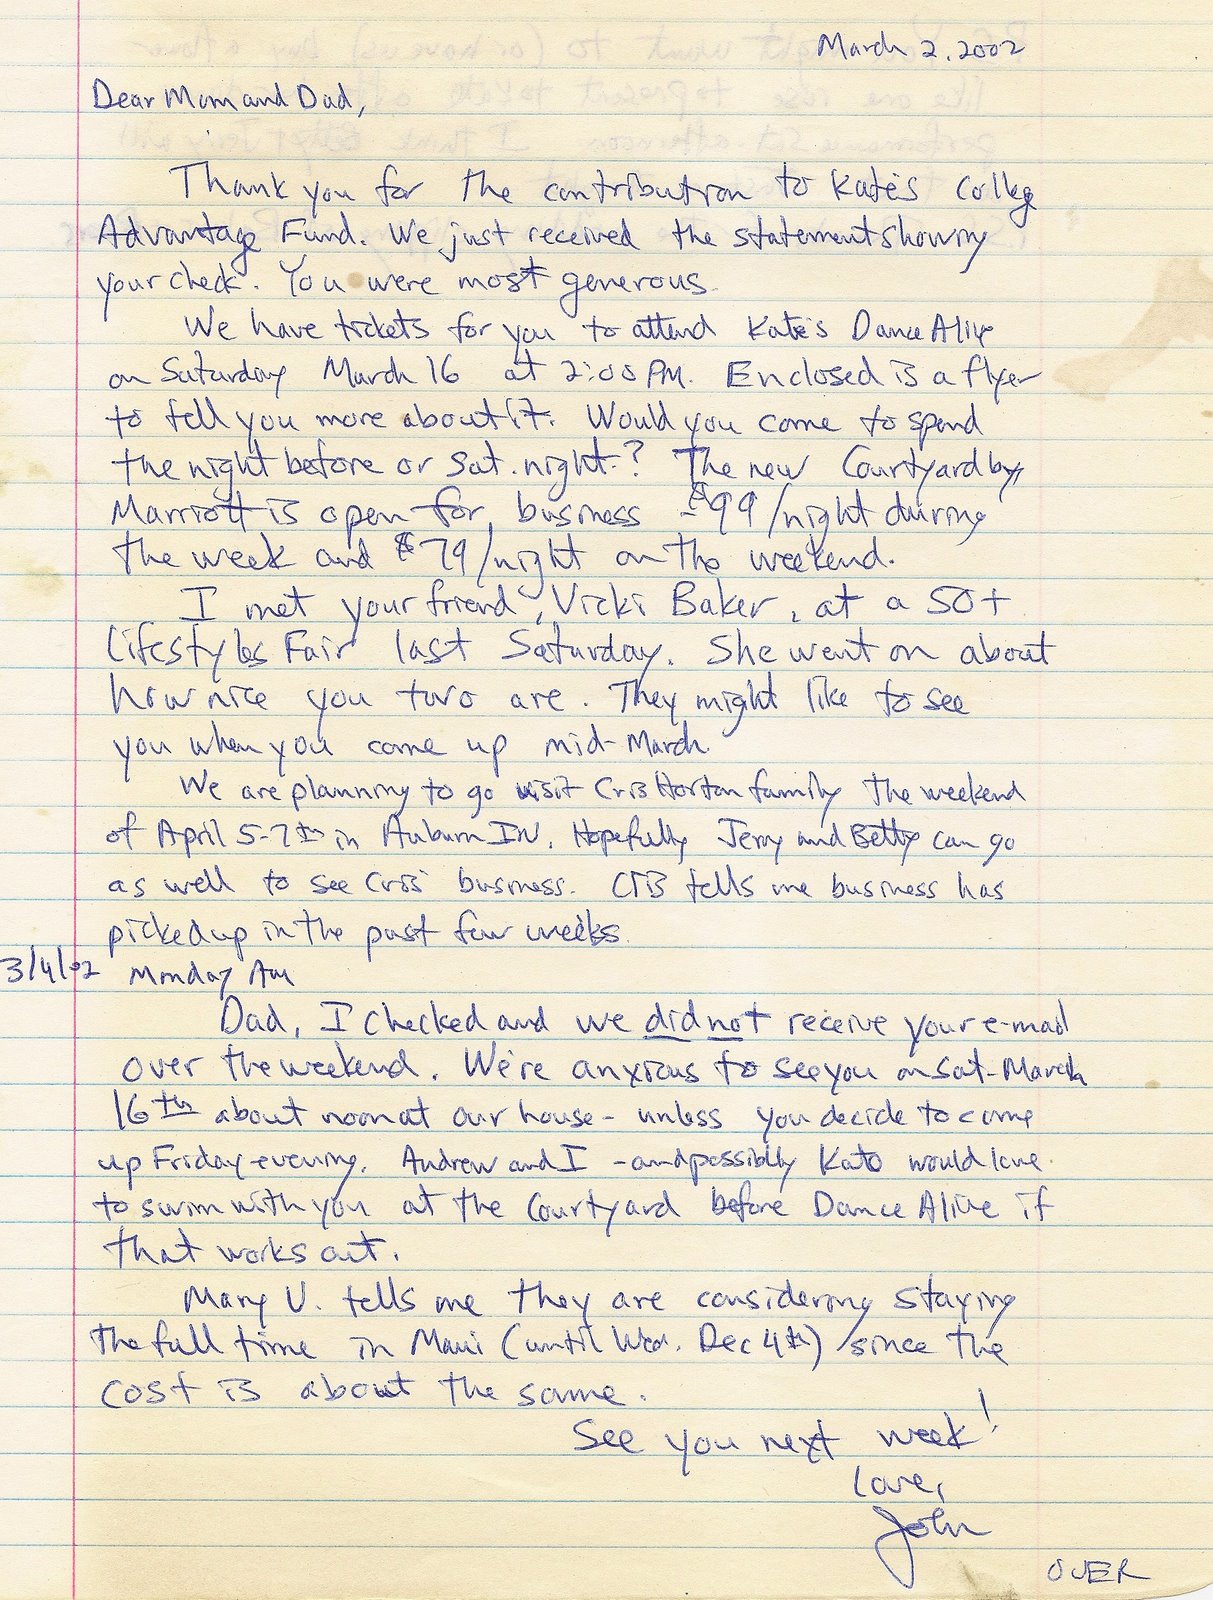 March 2, 2002
Dear Mom and Dad,
Thank you for the contribution to Kate's College
Advantage Fund. We just received the statement showing
your check. You were most generous.
We have tickets for you to attend Kate's Dance Alive
on Saturday March 16 at 2:00 PM. Enclosed is a flyer
to tell you more about it. Would you come to spend
the night before or Sat. night.? The new Courtyard by
Marriott is open for business - $99/night during
the week and $79/night on the weekend.
I met your friend, Vicki Baker, at a 50+
Lifestyles Fair last Saturday. She went on about
how nice you two are. They might like to see
you when you come up mid-March
We are planning to go visit Cris Horton family the weekend
of April 5-7th in Auburn IN. Hopefully Jerry and Betty can go
as well to see Cris' business. Cris tells me business has
picked up in the past few weeks.
3/4/02 Monday AM
Dad, I checked and we did not receive your e-mail
over the weekend. We're anxious to see you on Sat-March
16th about noon at our house - unless you decide to come
up Friday-evening. Andrew and I - and possibly Kate would love
to swim with you at the Courtyard before Dance Alive if
that works out.
Mary V. tells me they are considering staying
the full time in Maui (until Wed. Dec 4th) since the
cost is about the same.
See you next week!
Love,
John
OVER